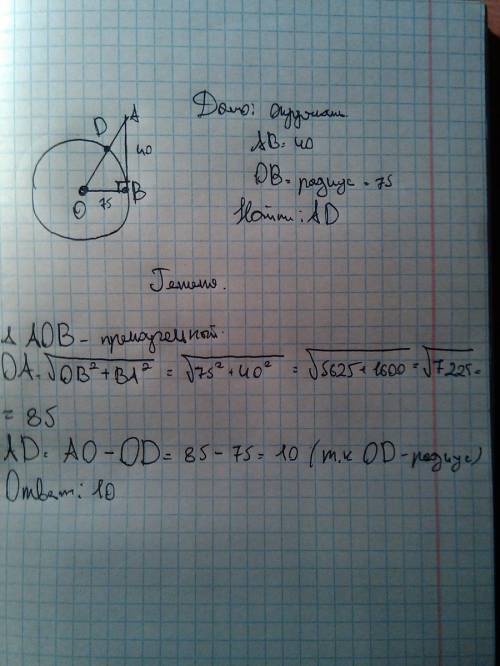 Дано: окружн.
AB = 40
OB = радиус = 75
Найти: AD
D
A
40
O
75
B
Решение.
Δ AOB - прямоугольный.
OA = √OB² + BA² = √75² + 40² = √5625 + 1600 = √7225 =
= 85
AD = AO - OD = 85 - 75 = 10 (т.к OD - радиус)
Ответ: 10